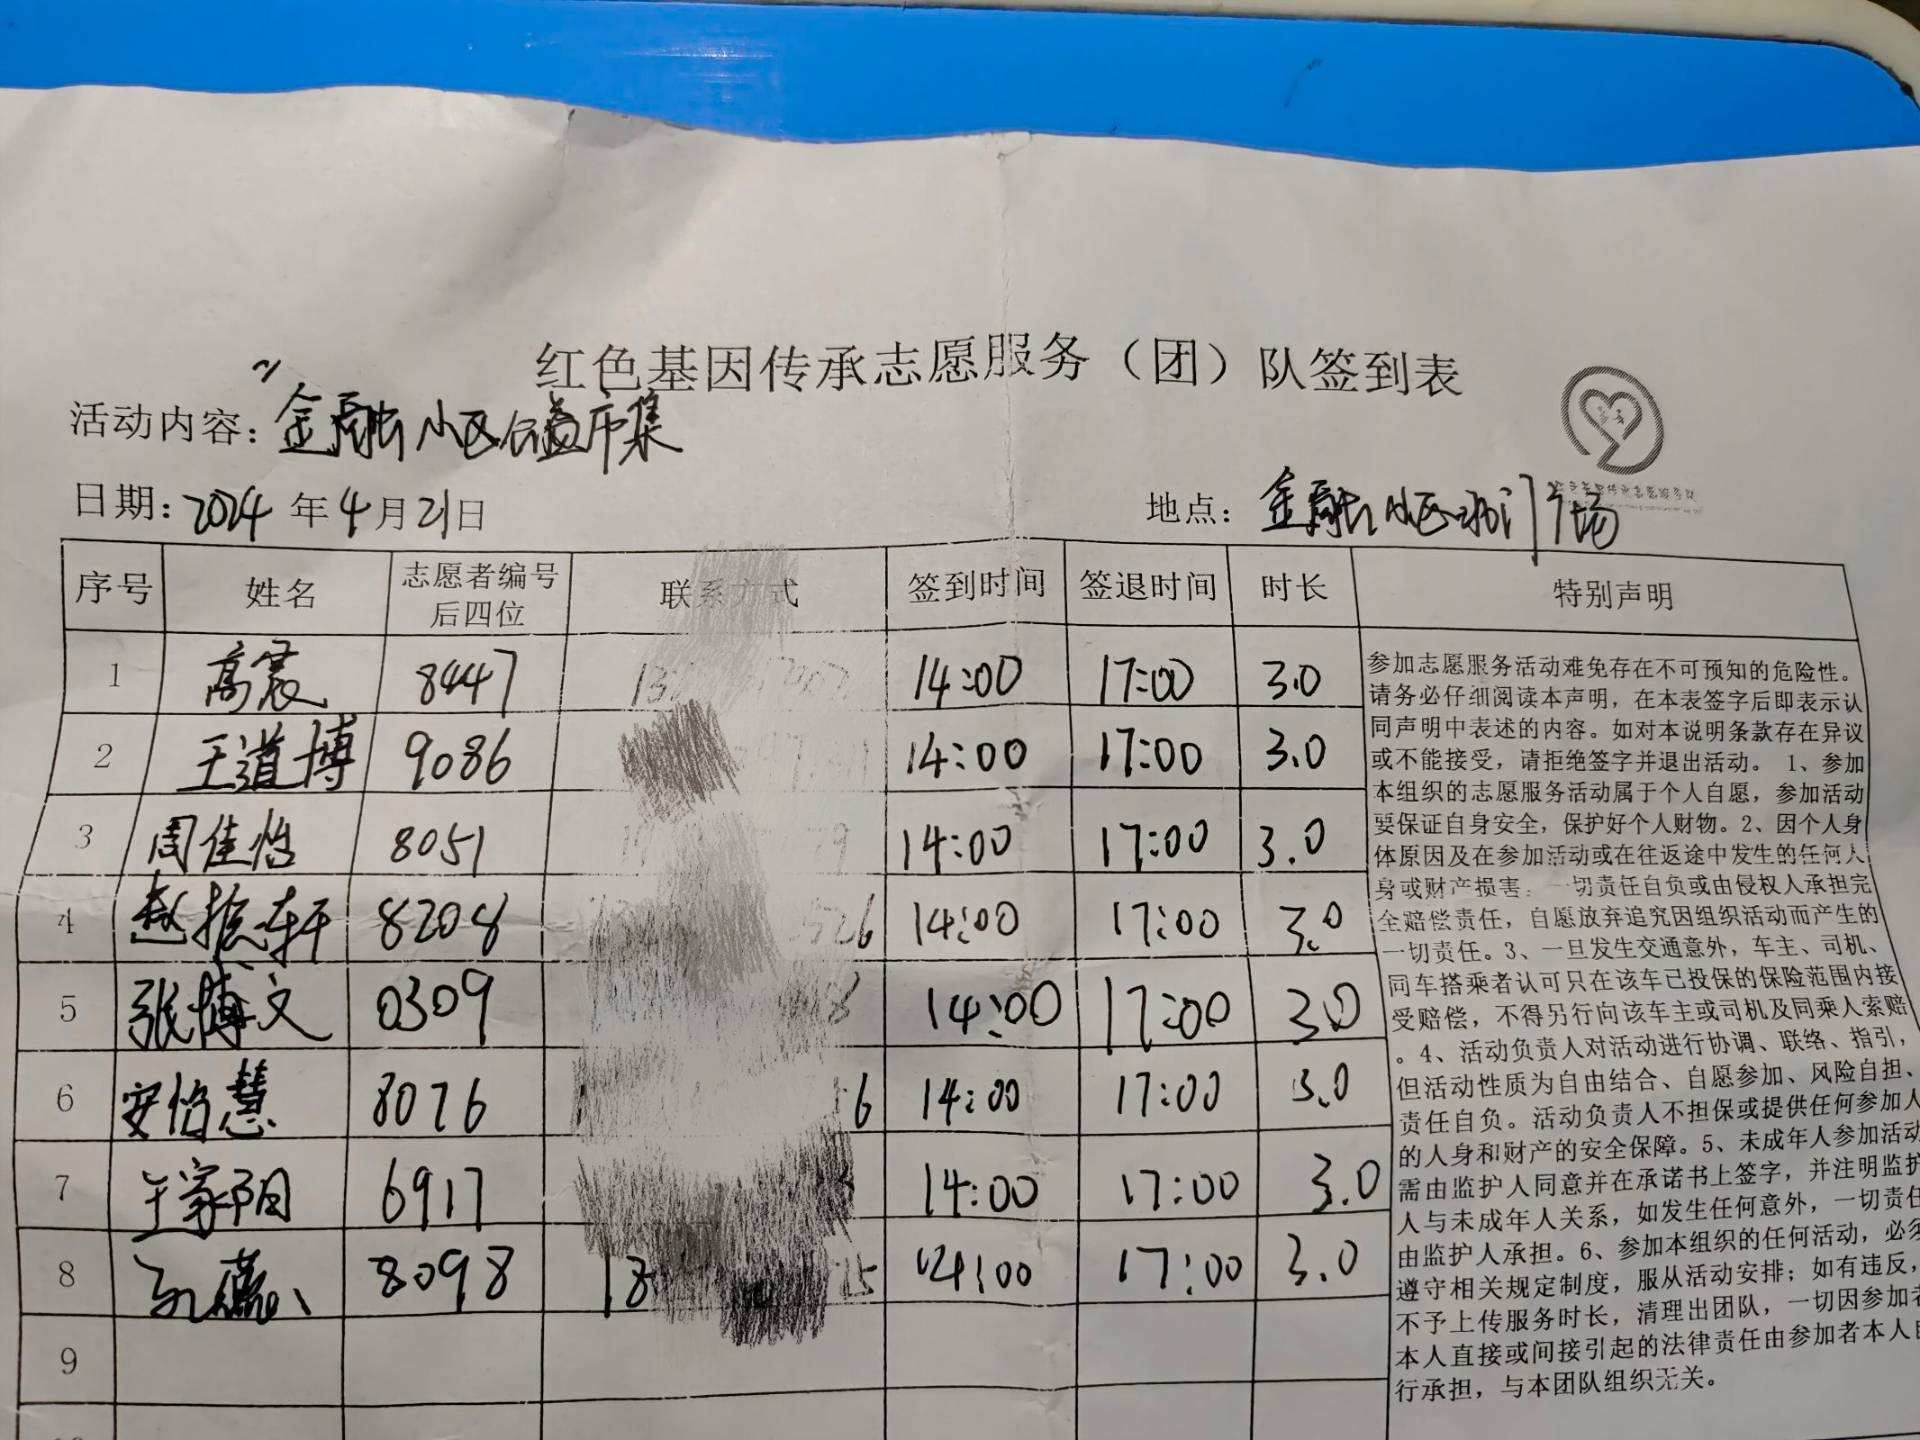 红色基因传承志愿服务（团）队签到表
活动内容：金融小区公益市集
日期：2024年4月21日
地点：金融小区 门广场
序号 姓名 志愿者编号后四位 联系方式 签到时间 签退时间 时长 特别声明
1 高震 8447 14:00 17:00 3.0
2 王道博 9086 14:00 17:00 3.0
3 周佳怡 8051 14:00 17:00 3.0
4 赵振轩 8208 14:00 17:00 3.0
5 张博文 0309 14:00 17:00 3.0
6 安怡慧 8076 14:00 17:00 3.0
7 王家阳 6917 14:00 17:00 3.0
8 8098 14:00 17:00 3.0
9
参加志愿服务活动难免存在不可预知的危险性。
请务必仔细阅读本声明，在本表签字后即表示认
同声明中表述的内容。如对本说明条款存在异议
或不能接受，请拒绝签字并退出活动。 1、参加
本组织的志愿服务活动属于个人自愿，参加活动
要保证自身安全，保护好个人财物。2、因个人身
体原因及在参加活动或在往返途中发生的任何人
身或财产损害：一切责任自负或由侵权人承担完
全赔偿责任，自愿放弃追究因组织活动而产生的
一切责任。3、一旦发生交通意外，车主、司机、
同车搭乘者认可只在该车已投保的保险范围内接
受赔偿，不得另行向该车主或司机及同乘人索赔
。4、活动负责人对活动进行协调、联络、指引，
但活动性质为自由结合、自愿参加、风险自担、
责任自负。活动负责人不担保或提供任何参加人
的人身和财产的安全保障。5、未成年人参加活动
需由监护人同意并在承诺书上签字，并注明监护
人与未成年人关系，如发生任何意外，一切责任
由监护人承担。6、参加本组织的任何活动，必须
遵守相关规定制度，服从活动安排；如有违反，
不予上传服务时长，清理出团队，一切因参加者
本人直接或间接引起的法律责任由参加者本人自
行承担，与本团队组织无关。